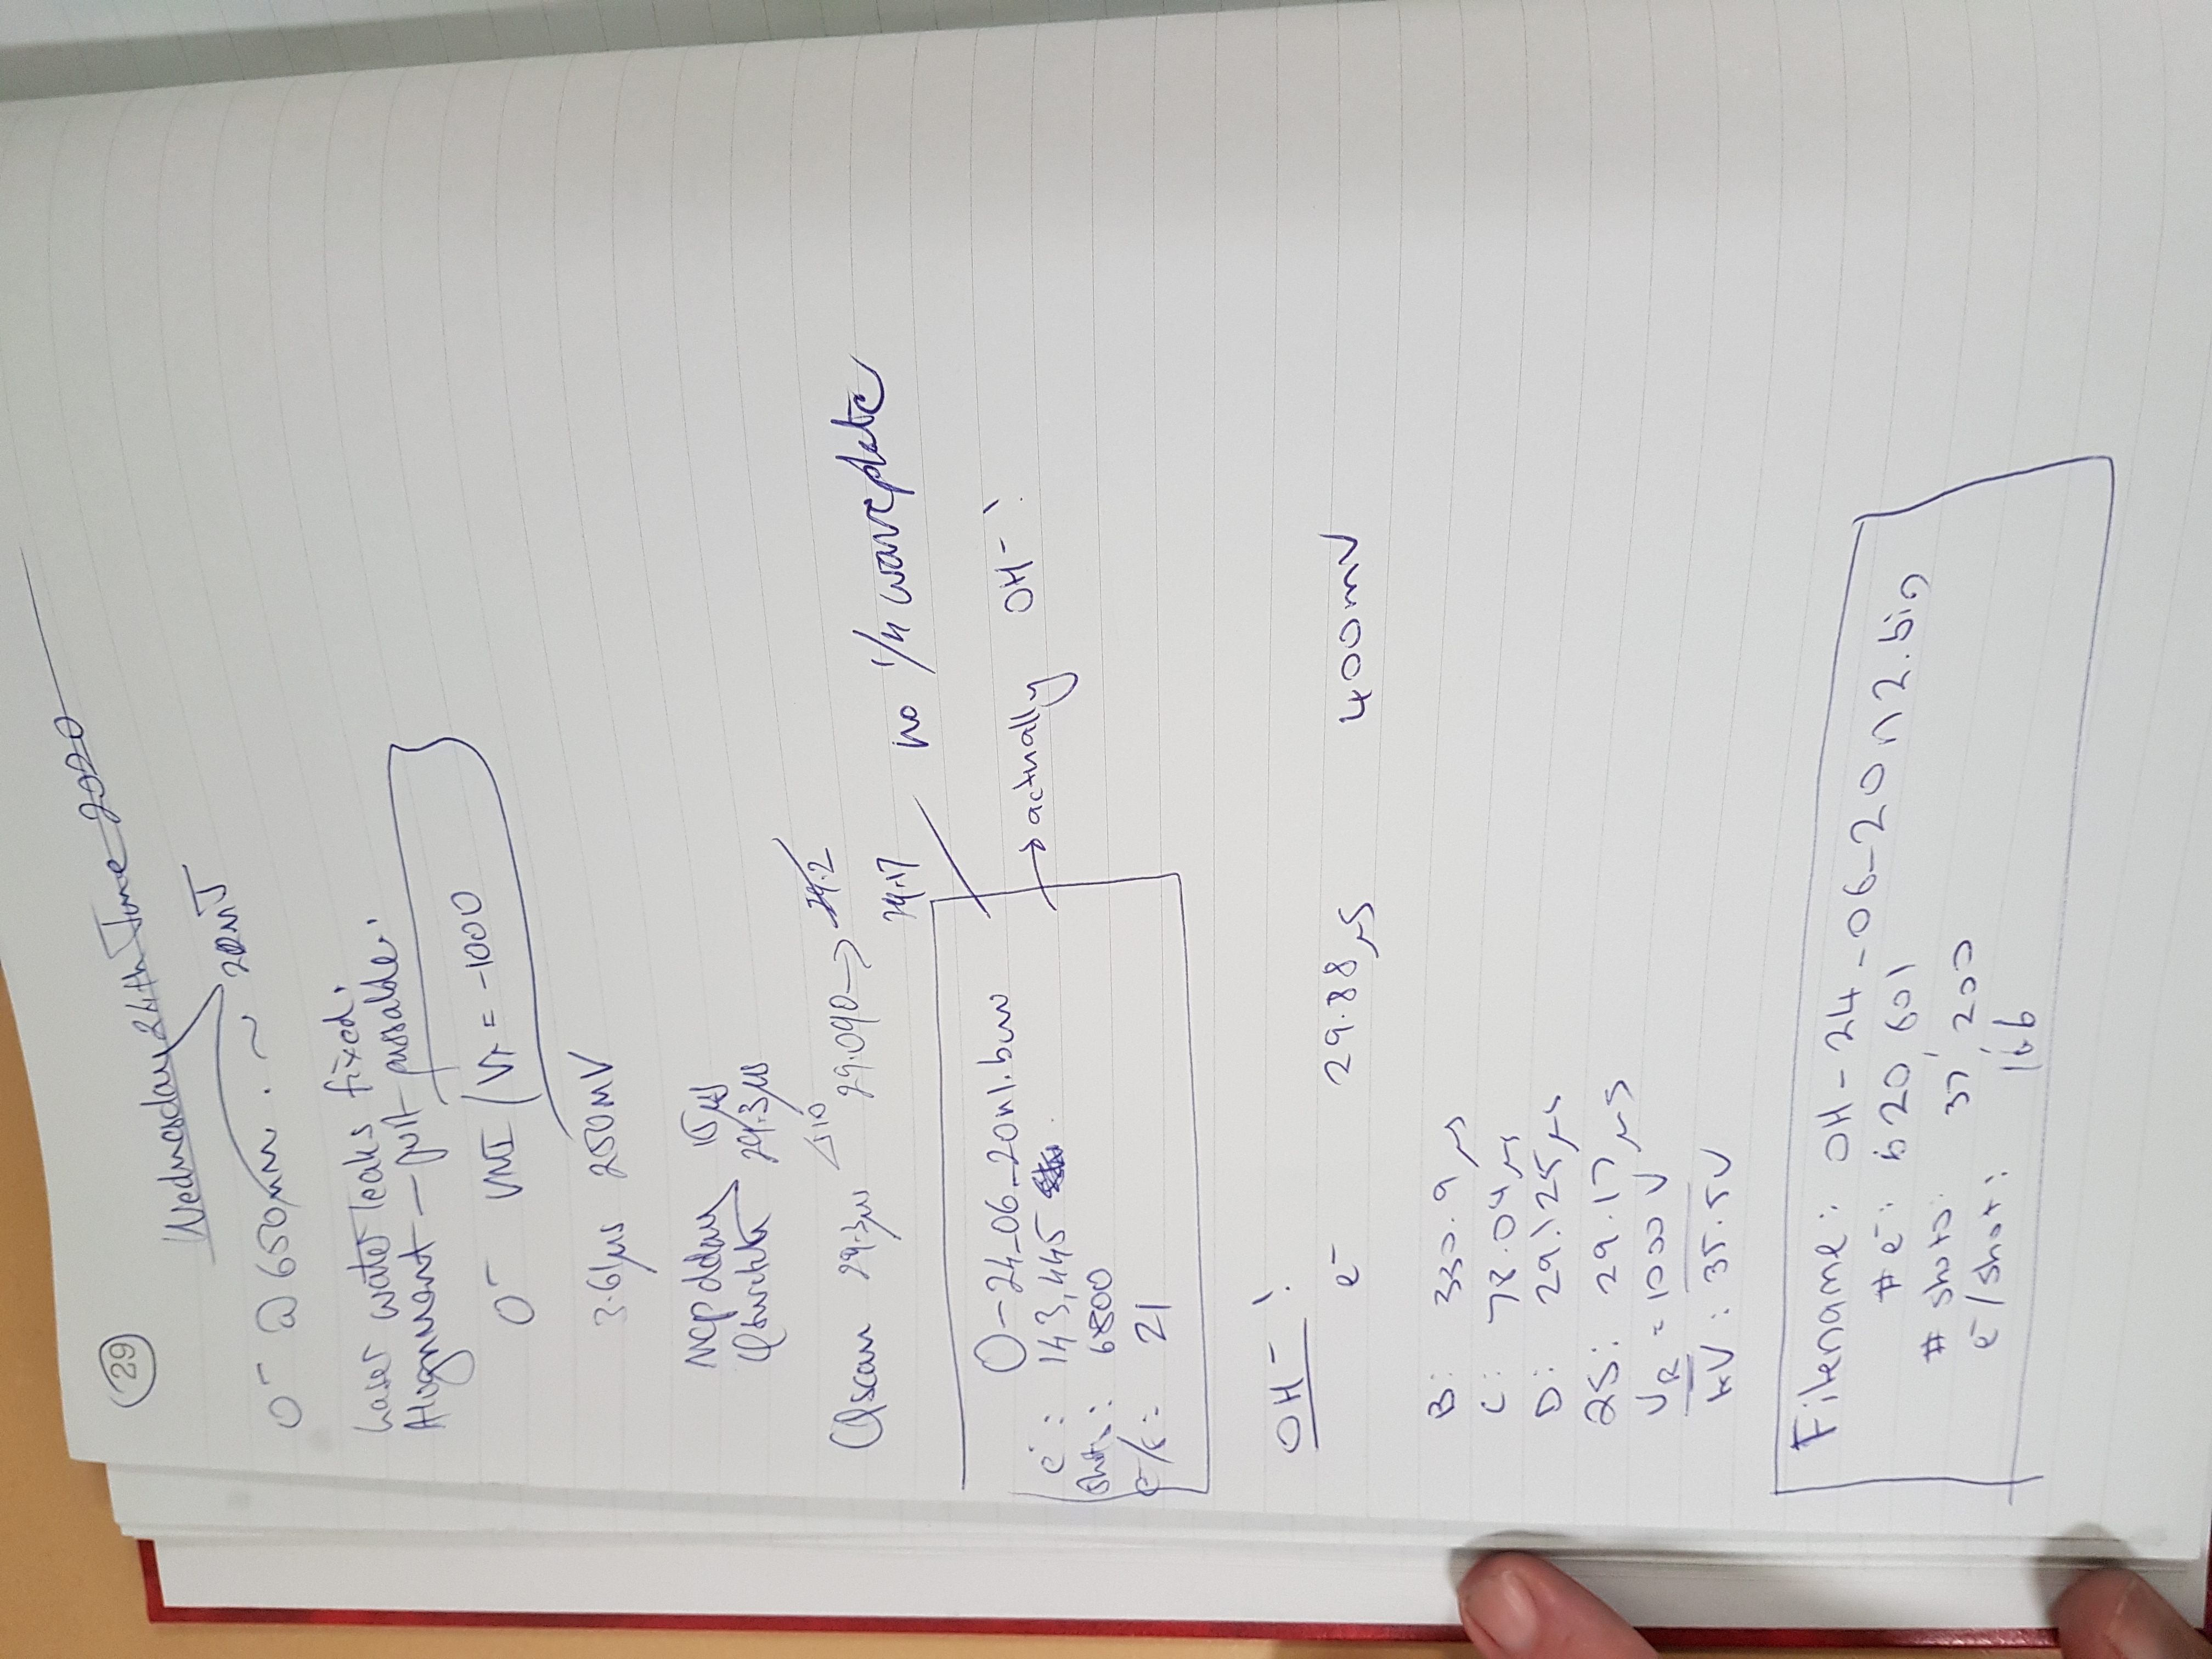 29
Wednesday 24th June 2020
O⁻ @ 650nm. ~ 20mJ
Laser water leaks fixed.
Alignment — just passable.
O⁻ VMI / Vr = -1000
3.61μs 250mV
MCP delay 15μs
Qswitch 29.3μs
Δ10
Qscan 29.3μs 29.090 → 29.2
29.17
no 1/4 waveplate
O-24_06_20n1.bin
e⁻: 143,445
→ actually OH⁻!
shots: 6800
e⁻/s: 21
OH⁻!
e⁻ 29.88μs 400mV
B: 330.9μs
C: 78.04μs
D: 29.125μs
QS: 29.17μs
VR = 1000V
: 35.5V
Filename: OH-24_06_20n2.bin
#e⁻: 620,601
# shots: 37,200
e⁻/shot: 16.6